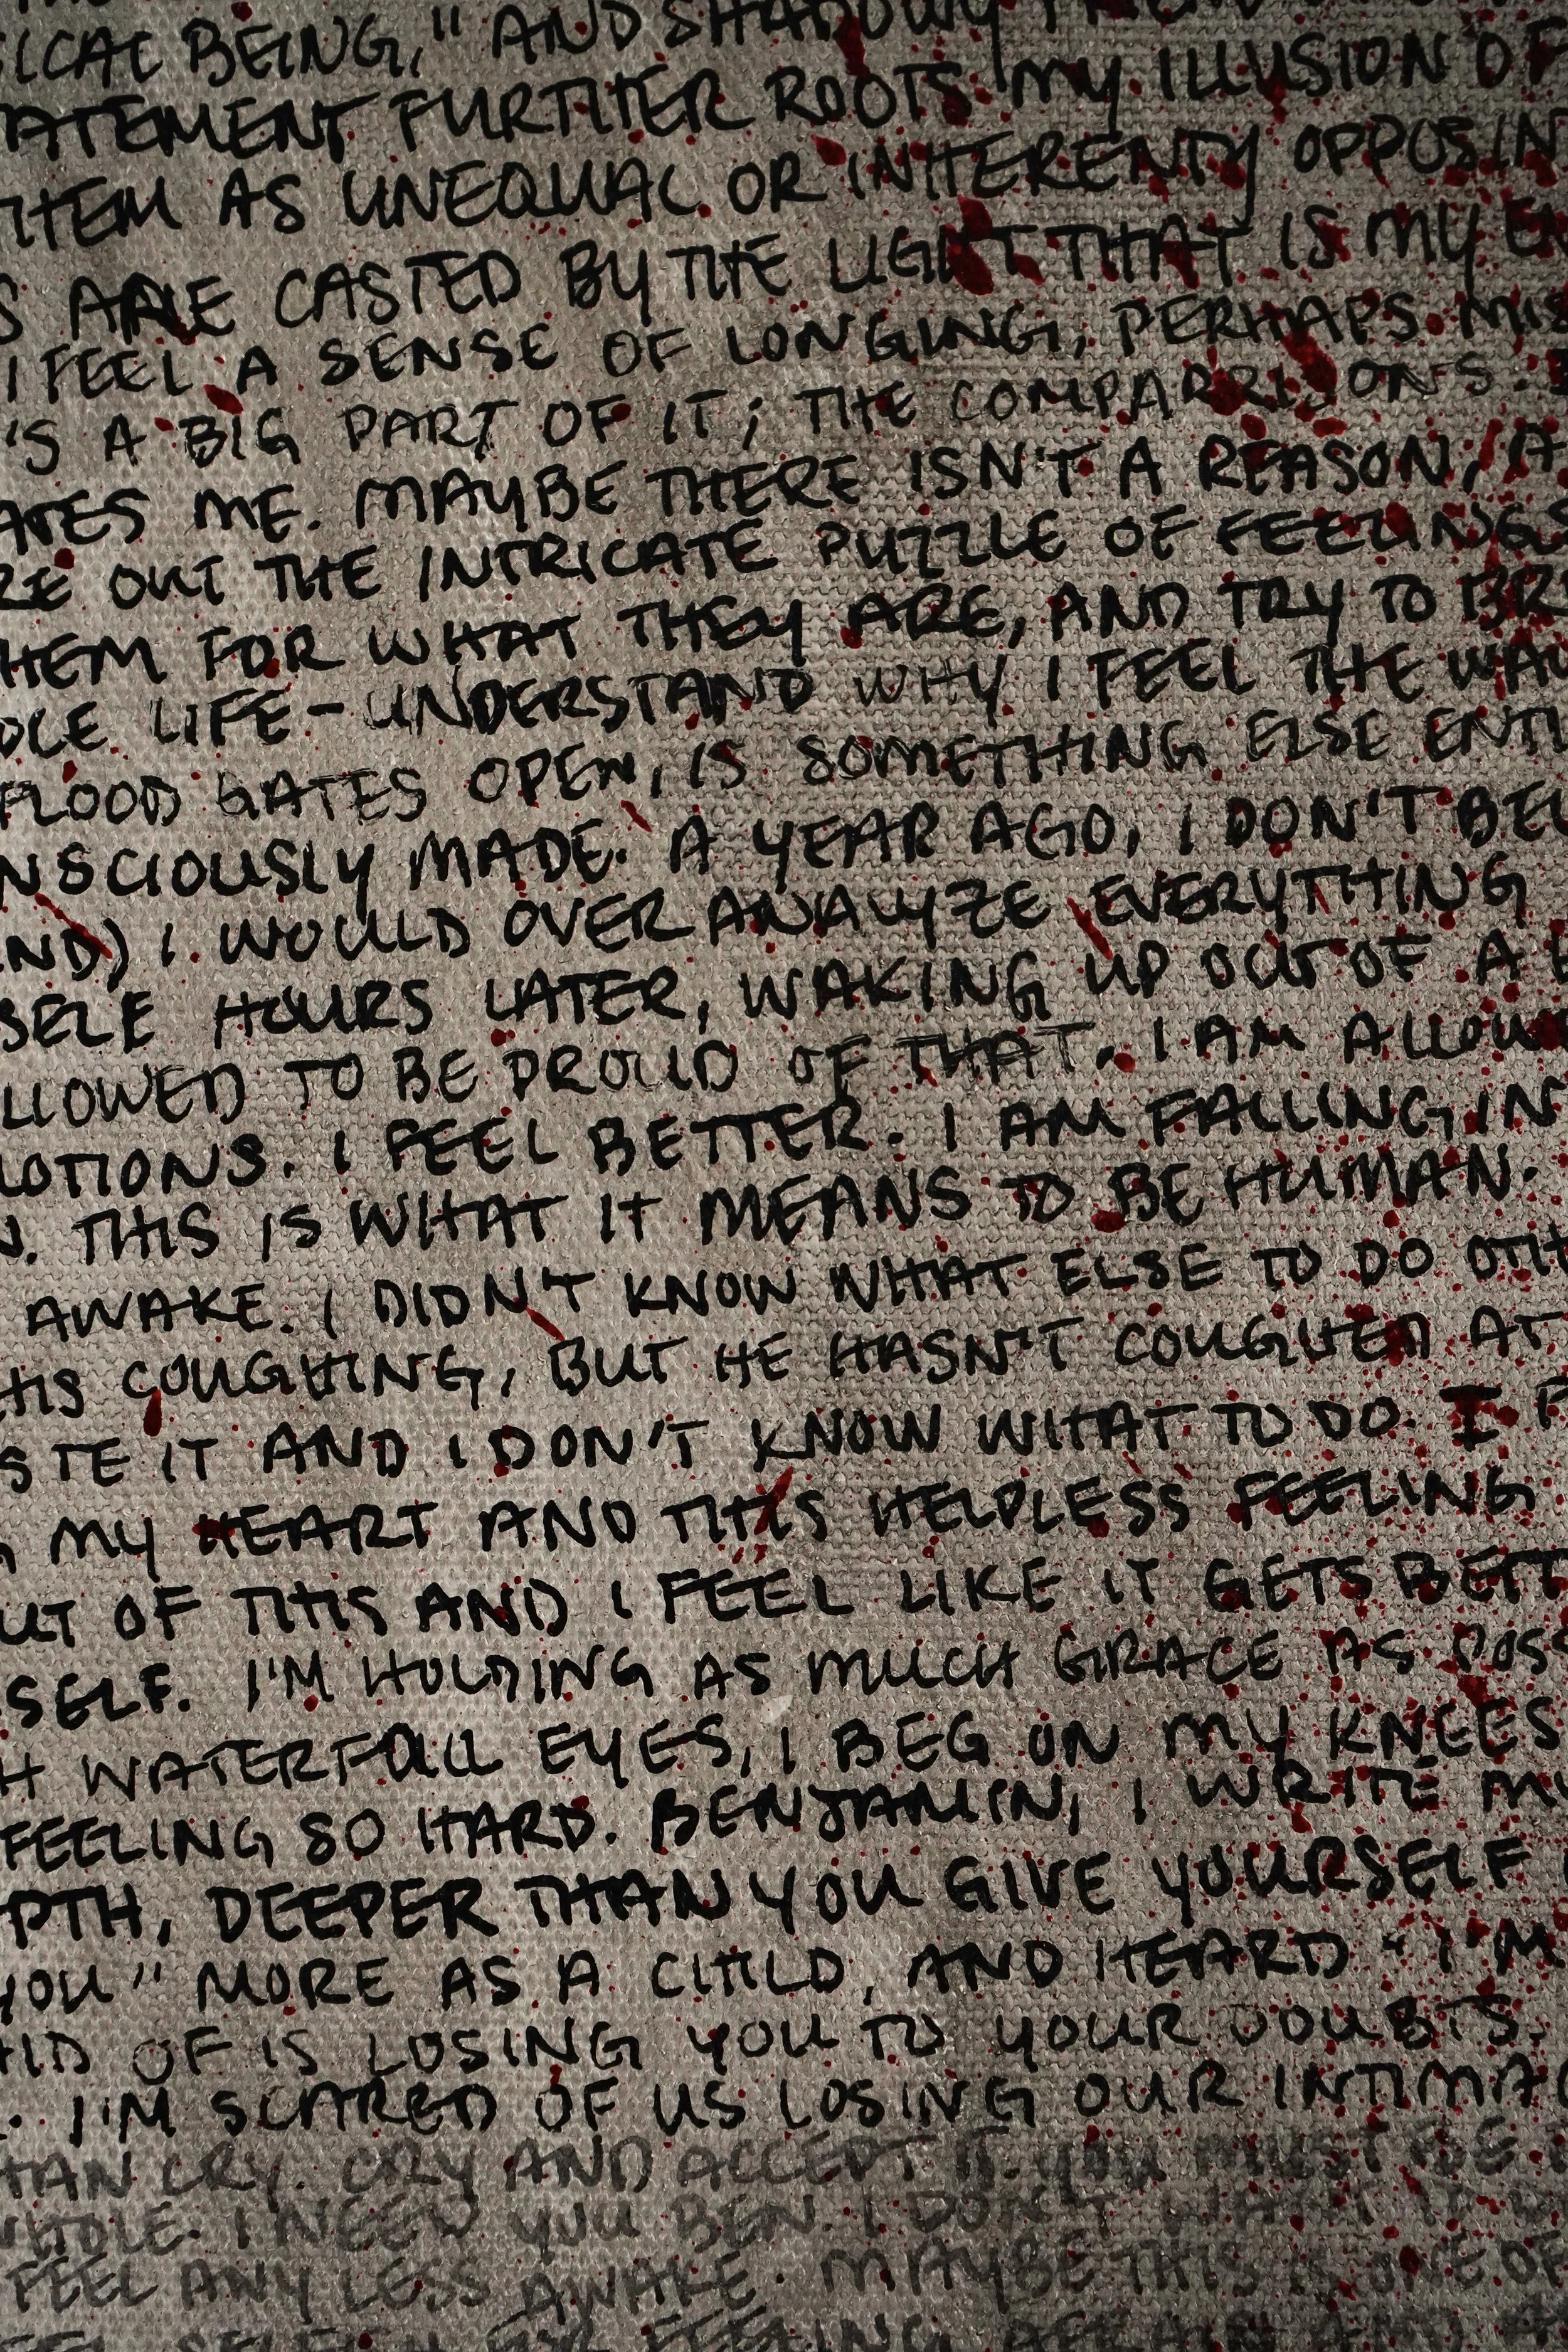 ICAL BEING," AND SHADOWY
ATEMENT FURTHER ROOTS MY ILLUSION OF
THEM AS UNEQUAL OR INHERENTLY OPPOSIN
S ARE CASTED BY THE LIGHT THAT IS MY E
I FEEL A SENSE OF LONGING, PERHAPS MIS
'S A BIG PART OF IT; THE COMPARRISONS.
ATES ME. MAYBE THERE ISN'T A REASON, A
RE OUT THE INTRICATE PUZZLE OF FEELINGS
HEM FOR WHAT THEY ARE, AND TRY TO BR
OLE LIFE - UNDERSTAND WHY I FEEL THE WAY
FLOOD GATES OPEN, IS SOMETHING ELSE ENTI
NSCIOUSLY MADE. A YEAR AGO, I DON'T BEL
ND) I WOULD OVER ANALYZE EVERYTHING
SELF HOURS LATER, WAKING UP OUT OF A
LLOWED TO BE PROUD OF THAT. I AM ALLOW
OTIONS. I FEEL BETTER. I AM FALLING IN
N. THIS IS WHAT IT MEANS TO BE HUMAN.
AWAKE. I DIDN'T KNOW WHAT ELSE TO DO OTH
HIS COUGHING, BUT HE HASN'T COUGHED AT
STE IT AND I DON'T KNOW WHAT TO DO. I
MY HEART AND THIS HELPLESS FEELING
UT OF THIS AND I FEEL LIKE IT GETS BETT
SELF. I'M HOLDING AS MUCH GRACE AS POSS
H WATERFALL EYES, I BEG ON MY KNEES
FEELING SO HARD. BENJAMIN, I WRITE M
PTH, DEEPER THAN YOU GIVE YOURSELF
YOU" MORE AS A CHILD, AND HEARD "I'M
AID OF IS LOSING YOU TO YOUR DOUBTS.
. I'M SCARED OF US LOSING OUR INTIMA
HAN CRY. CRY AND ACCEPT IT. YOU MUST BE
WHOLE. I NEED YOU BEN. I DON'T WANT
FEEL ANY LESS AWAKE. MAYBE THIS IS ONE OF